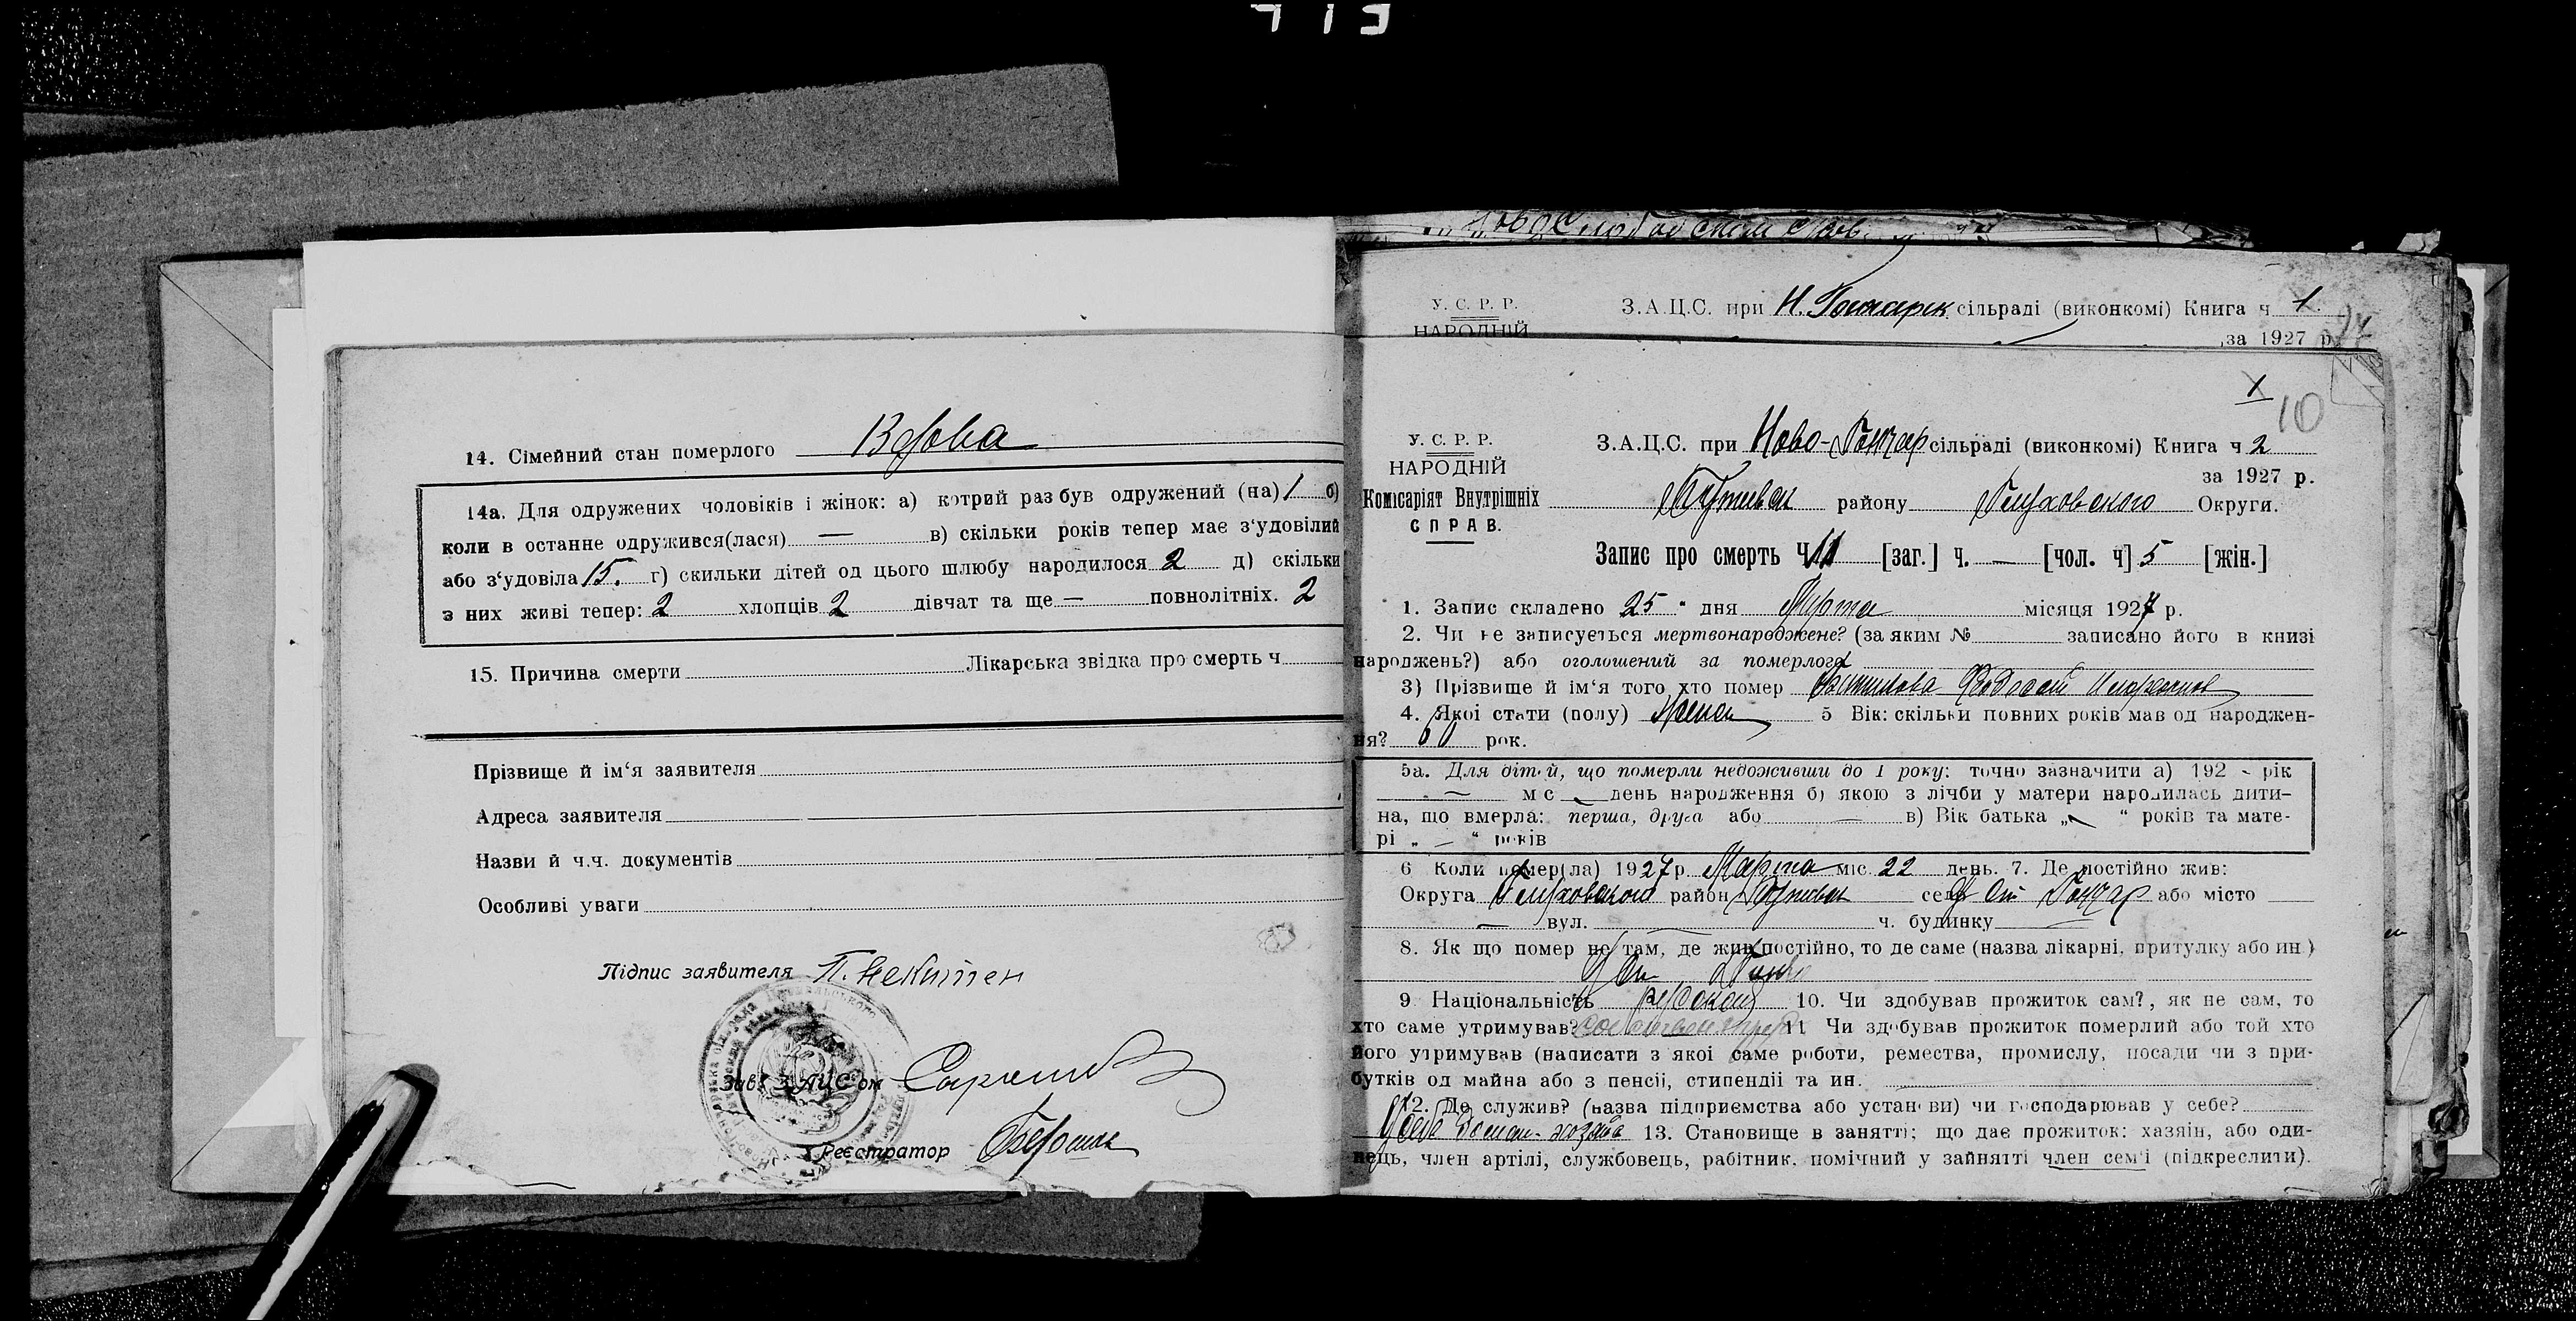 14. Сімейний стан померлого Вдова
14а. Для одружених чоловіків і жінок: а) котрий раз був одружений (на) 1 б)
коли в останне одружився(лася) — в) скільки років тепер має з‘удовілий
або з‘удовіла 15. г) скильки дітей од цього шлюбу народилося 2 д) скільки
з них живі тепер: 2 хлопців 2 дівчат та ще — повнолітніх. 2
15. Причина смерти Лікарська звідка про смерть ч
Прізвище й ім‘я заявителя
Адреса заявителя
Назви й ч.ч. документів
Особливі уваги
Підпис заявителя П.
Зав. ЗАЦС‘ом
Реєстратор
У. С. Р. Р. З.А.Ц.С. при Н. Гончарск сільраді (виконкомі) Книга ч 1.
НАРОДНІЙ за 1927 р.
1
10
У. С. Р. Р. З.А.Ц.С. при Ново-Гончар сільраді (виконкомі) Книга ч 2
НАРОДНІЙ за 1927 р.
Комісаріят Внутрішніх Путивск району Глуховского Округи.
СПРАВ.
Запис про смерть Ч 11 [заг.] ч. — [чол. ч] 5 [жін.]
1. Запис складено 25 " дня Марта місяця 1927 р.
2. Чи не записується мертвонароджене? (за яким № записано його в книзі
народжень?) або оголошений за померлого
3) Прізвище й ім‘я того хто помер
4. Якоі стати (полу) Женск 5 Вік: скільки повних років мав од народжен-
ня? 60 рок.
5а. Для дітей, що померли недоживши до 1 року: точно зазначити а) 192 - рік
— м с — день народження б) якою з лічби у матери народилась дити-
на, що вмерла: перша, друга або — в) Вік батька „ — “ років та мате-
рі „ — “ років
6 Коли помер(ла) 1927 р. Марта міс. 22 день. 7. Де постійно жив:
Округа Глуховского район Путивск село Гончар або місто
— вул. ч. будинку
8. Як що помер не там, де жив постійно, то де саме (назва лікарні, притулку або ин.)
9. Національність 10. Чи здобував прожиток сам?, як не сам, то
хто саме утримував? 11 Чи здобував прожиток померлий або той хто
його утримував (написати з якоі саме роботи, ремества, промислу, посади чи з при-
бутків од майна або з пенсіі, стипендіі та ин.
12. Де служив? (назва підприємства або установи) чи господарював у себе?
13. Становище в занятті; що дає прожиток: хазяін, або оди-
нець, член артілі, службовець, рабітник. помічний у зайнятті член сем‘і (підкреслити).